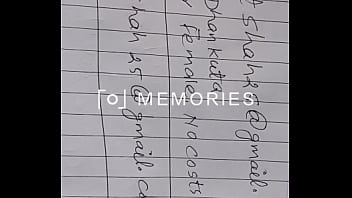 Shah25@gmail.
Dhankuta
Female No costs
hah25@gmail.co
MEMORIES